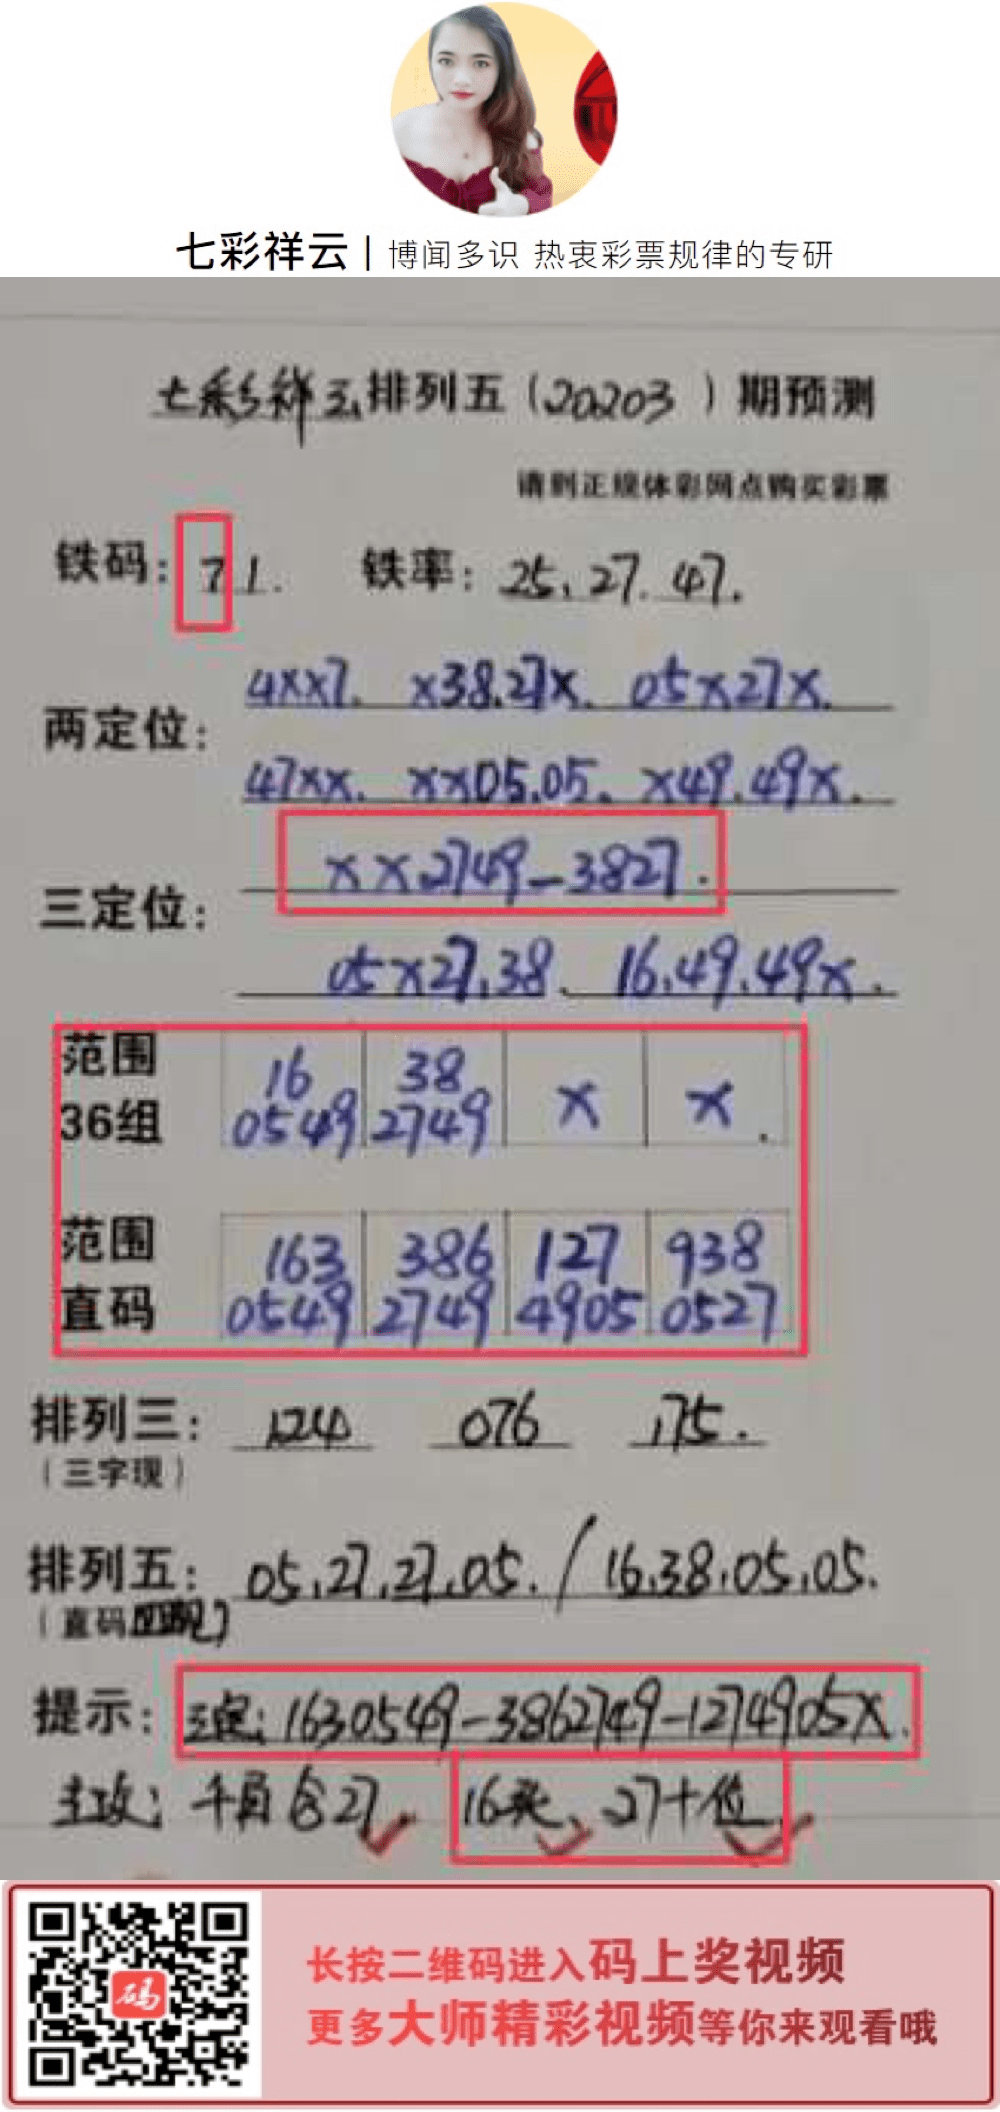 七彩祥云 | 博闻多识 热衷彩票规律的专研
七彩祥云排列五(20203)期预测
请到正规体彩网点购买彩票
铁码: 71. 铁率: 25. 27. 47.
两定位: 4XX7. X38.27X. 05X27X.
47XX. XX05.05. X49.49X.
三定位: XX2749-3827.
05X27.38. 16.49.49X.
范围 36组 16 0549 38 2749 X X.
范围 直码 163 0549 386 2749 127 4905 938 0527
排列三: 124 076 175.
(三字现)
排列五: 05.27.27.05. / 16.38.05.05.
(直码四现)
提示: 三定: 1630549-3862749-1274905X.
主攻: 千百合27. 16头、27十位.
码
长按二维码进入码上奖视频
更多大师精彩视频等你来观看哦